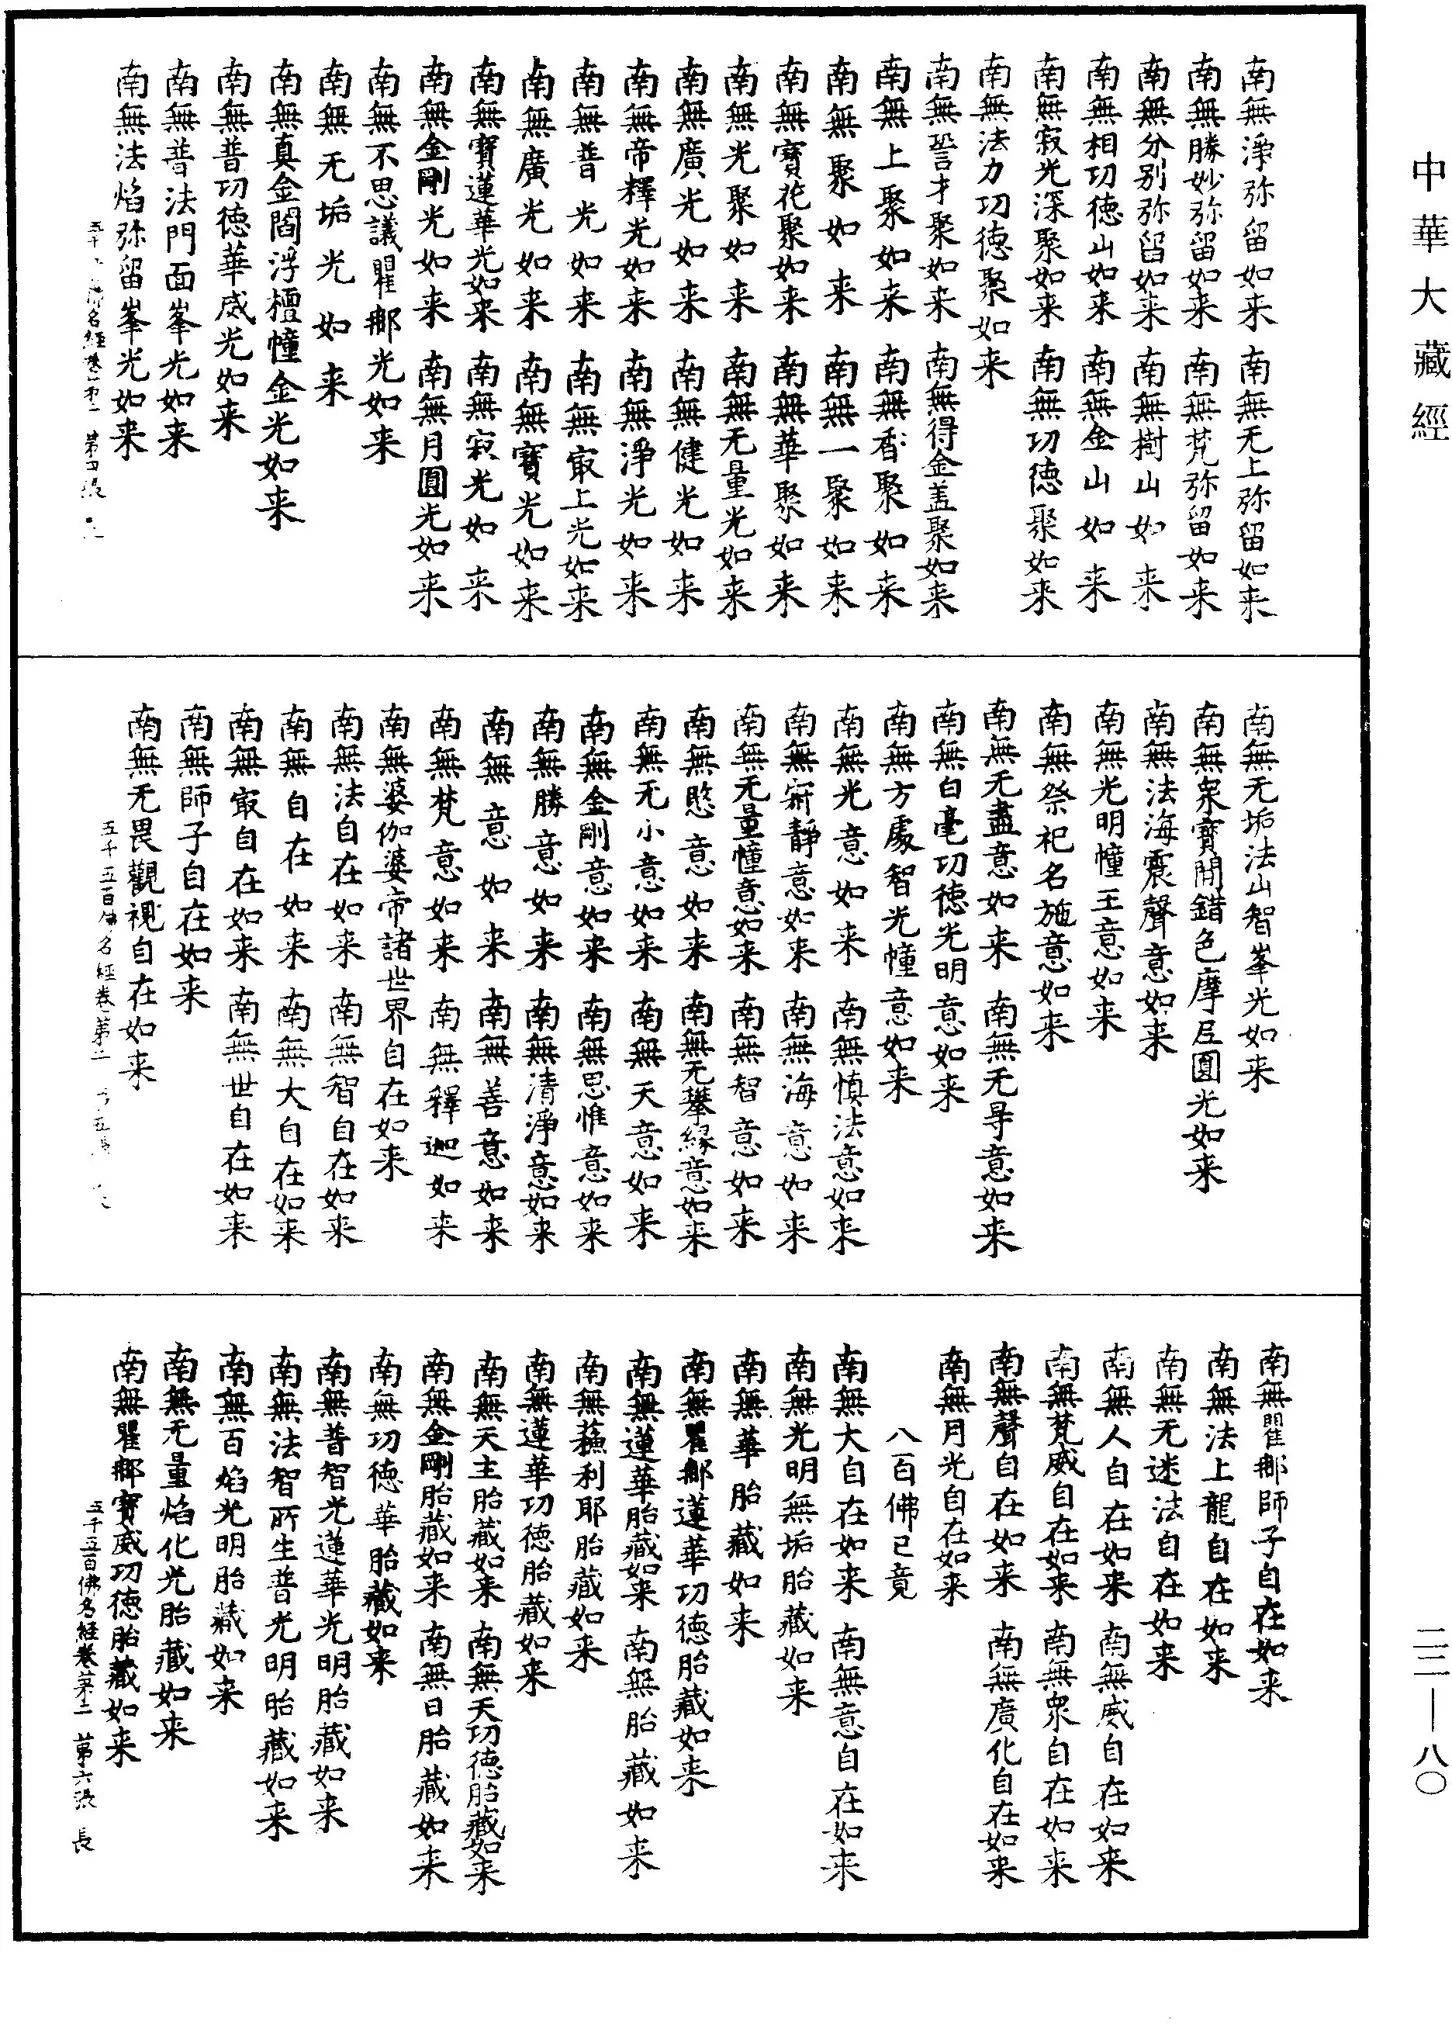 中華大藏經
南無淨弥留如来 南無无上弥留如来
南無勝妙弥留如来 南無梵弥留如来
南無分别弥留如来 南無樹山如来
南無相功徳山如来 南無金山如来
南無寂光深聚如来 南無功徳聚如来
南無法力功徳聚如来
南無聚如来 南無得金盖聚如来
南無上聚如来 南無香聚如来
南無聚如来 南無一聚如来
南無寶花聚如来 南無華聚如来
南無光聚如来 南無无量光如来
南無廣光如来 南無健光如来
南無帝釋光如来 南無淨光如来
南無普光如来 南無冣上光如来
南無廣光如来 南無寶光如来
南無寶蓮華光如来 南無寂光如来
南無金剛光如来 南無月圓光如来
南無不思議瞿郍光如来
南無无垢光如来
南無真金閻浮檀幢金光如来
南無普功徳華威光如来
南無普法門面峯光如来
南無法焰弥留峯光如来
名經卷第二 第四張
南無无垢法山智峯光如来
南無衆寶間錯色摩尼圓光如来
南無法海震聲意如来
南無光明幢王意如来
南無祭祀名施意如来
南無无盡意如来 南無无㝵意如来
南無白毫功徳光明意如来
南無方處智光幢意如来
南無光意如来 南無慎法意如来
南無寂靜意如来 南無海意如来
南無无量幢意如来 南無智意如来
南無愍意如来 南無无攀縁意如来
南無无小意如来 南無天意如来
南無金剛意如来 南無思惟意如来
南無勝意如来 南無清淨意如来
南無意如来 南無善意如来
南無梵意如来 南無釋迦如来
南無婆伽婆帝諸世界自在如来
南無法自在如来 南無智自在如来
南無自在如来 南無大自在如来
南無冣自在如来 南無世自在如来
南無師子自在如来
南無无畏觀視自在如来
五千五百佛名經卷第二 五張
南無瞿郍師子自在如来
南無法上龍自在如来
南無无迷法自在如来
南無人自在如来 南無威自在如来
南無梵威自在如来 南無衆自在如来
南無聲自在如来 南無廣化自在如来
南無月光自在如来
八百佛已竟
南無大自在如来 南無意自在如来
南無光明無垢胎藏如来
南無華胎藏如来
南無瞿郍蓮華功徳胎藏如来
南無蓮華胎藏如来 南無胎藏如来
南無蘓利耶胎藏如来
南無蓮華功徳胎藏如来
南無天主胎藏如来 南無天功徳胎藏如来
南無金剛胎藏如来 南無日胎藏如来
南無功徳華胎藏如来
南無普智光蓮華光明胎藏如来
南無法智所生普光明胎藏如来
南無百焰光明胎藏如来
南無无量焰化光胎藏如来
南無瞿郍寶威功徳胎藏如来
五千五百佛名經卷第二 第六張 長
二二—八〇